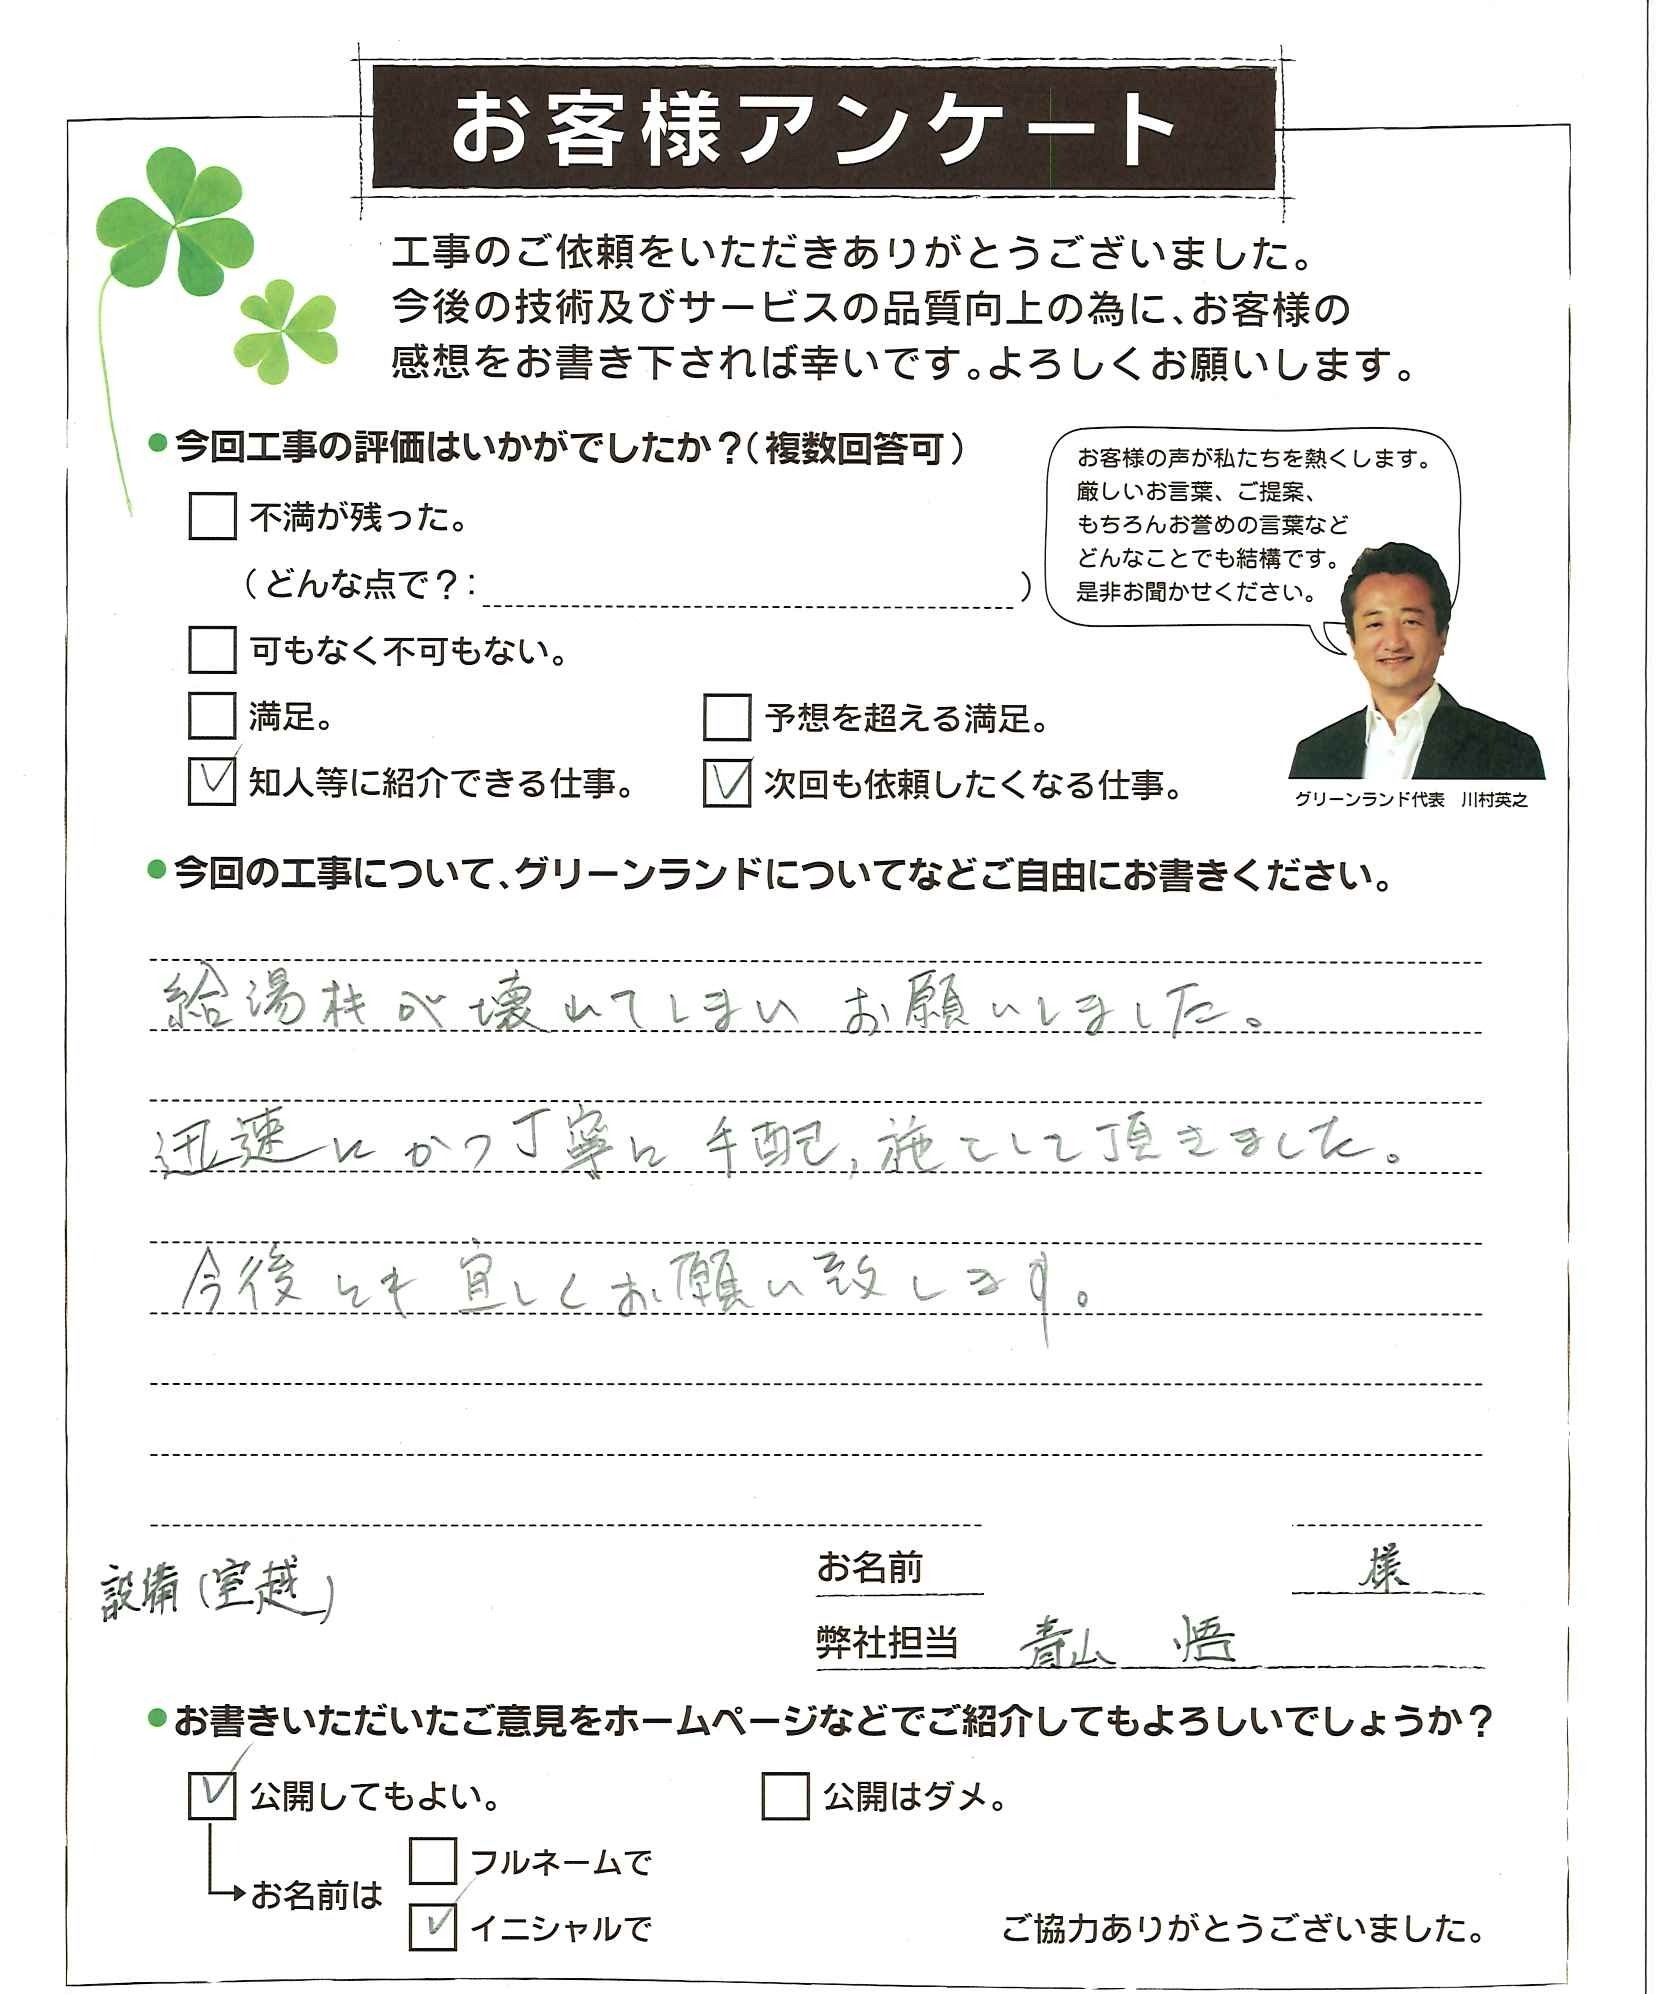 お客様アンケート
工事のご依頼をいただきありがとうございました。
今後の技術及びサービスの品質向上の為に、お客様の
感想をお書き下されば幸いです。よろしくお願いします。
●今回工事の評価はいかがでしたか？（複数回答可）
不満が残った。
（どんな点で？：　）
可もなく不可もない。
満足。
予想を超える満足。
知人等に紹介できる仕事。
次回も依頼したくなる仕事。
お客様の声が私たちを熱くします。
厳しいお言葉、ご提案、
もちろんお誉めの言葉など
どんなことでも結構です。
是非お聞かせください。
グリーンランド代表　川村英之
●今回の工事について、グリーンランドについてなどご自由にお書きください。
給湯機が壊れてしまい お願いしました。
迅速にかつ丁寧に手配,施工して頂きました。
今後とも宜しくお願い致します。
設備(室越)
お名前　様
弊社担当　青山　悟
●お書きいただいたご意見をホームページなどでご紹介してもよろしいでしょうか？
公開してもよい。
公開はダメ。
お名前は
フルネームで
イニシャルで
ご協力ありがとうございました。